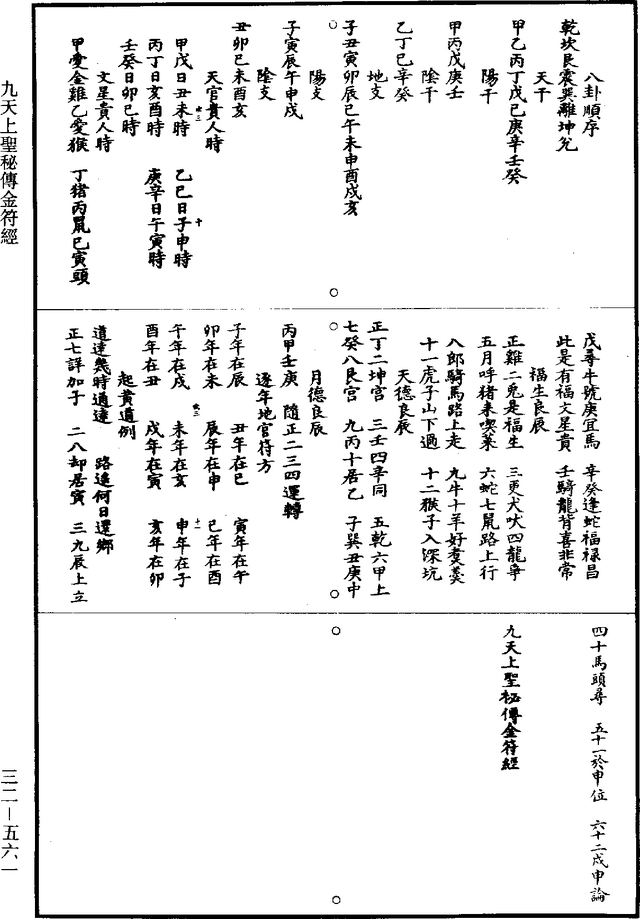 八卦順序
乾坎艮震巽離坤兌
天干
甲乙丙丁戊己庚辛壬癸
陽干
甲丙戊庚壬
陰干
乙丁己辛癸
地支
子丑寅卯辰巳午未申酉戌亥
陽支
子寅辰午申戌
陰支
丑卯巳未酉亥
天官貴人時
甲戊日丑未時 乙己日子申時
丙丁日亥酉時 庚辛日午寅時
壬癸日卯巳時
文星貴人時
甲愛金雞乙愛猴 丁猪丙鼠己寅頭
戊尋牛號庚宜馬 辛癸逢蛇福禄昌
此是有福文星貴 壬騎龍背喜非常
福生良辰
正雞二兎是福生 三更犬吠四龍爭
五月呼猪来喫菜 六蛇七鼠路上行
八郎騎馬路上走 九牛十羊好煑羹
十一虎子山下過 十二猴子入深坑
天德良辰
正丁二坤宫 三壬四辛同 五乾六甲上
七癸八艮宫 九丙十居乙 子巽丑庚中
月德良辰
丙甲壬庚 隨正二三四運轉
逐年地官符方
子年在辰 丑年在巳 寅年在午
卯年在未 辰年在申 巳年在酉
午年在戌 未年在亥 申年在子
酉年在丑 戌年在寅 亥年在卯
起黄道例
道遠幾時通達 路遥何日還鄉
正七詳加子 二八却居寅 三九辰上立
四十馬頭尋 五十一於申位 六十二戌申論
九天上聖秘傳金符經
九天上聖秘傳金符經
三二－五六一
十三
十
十三
十一